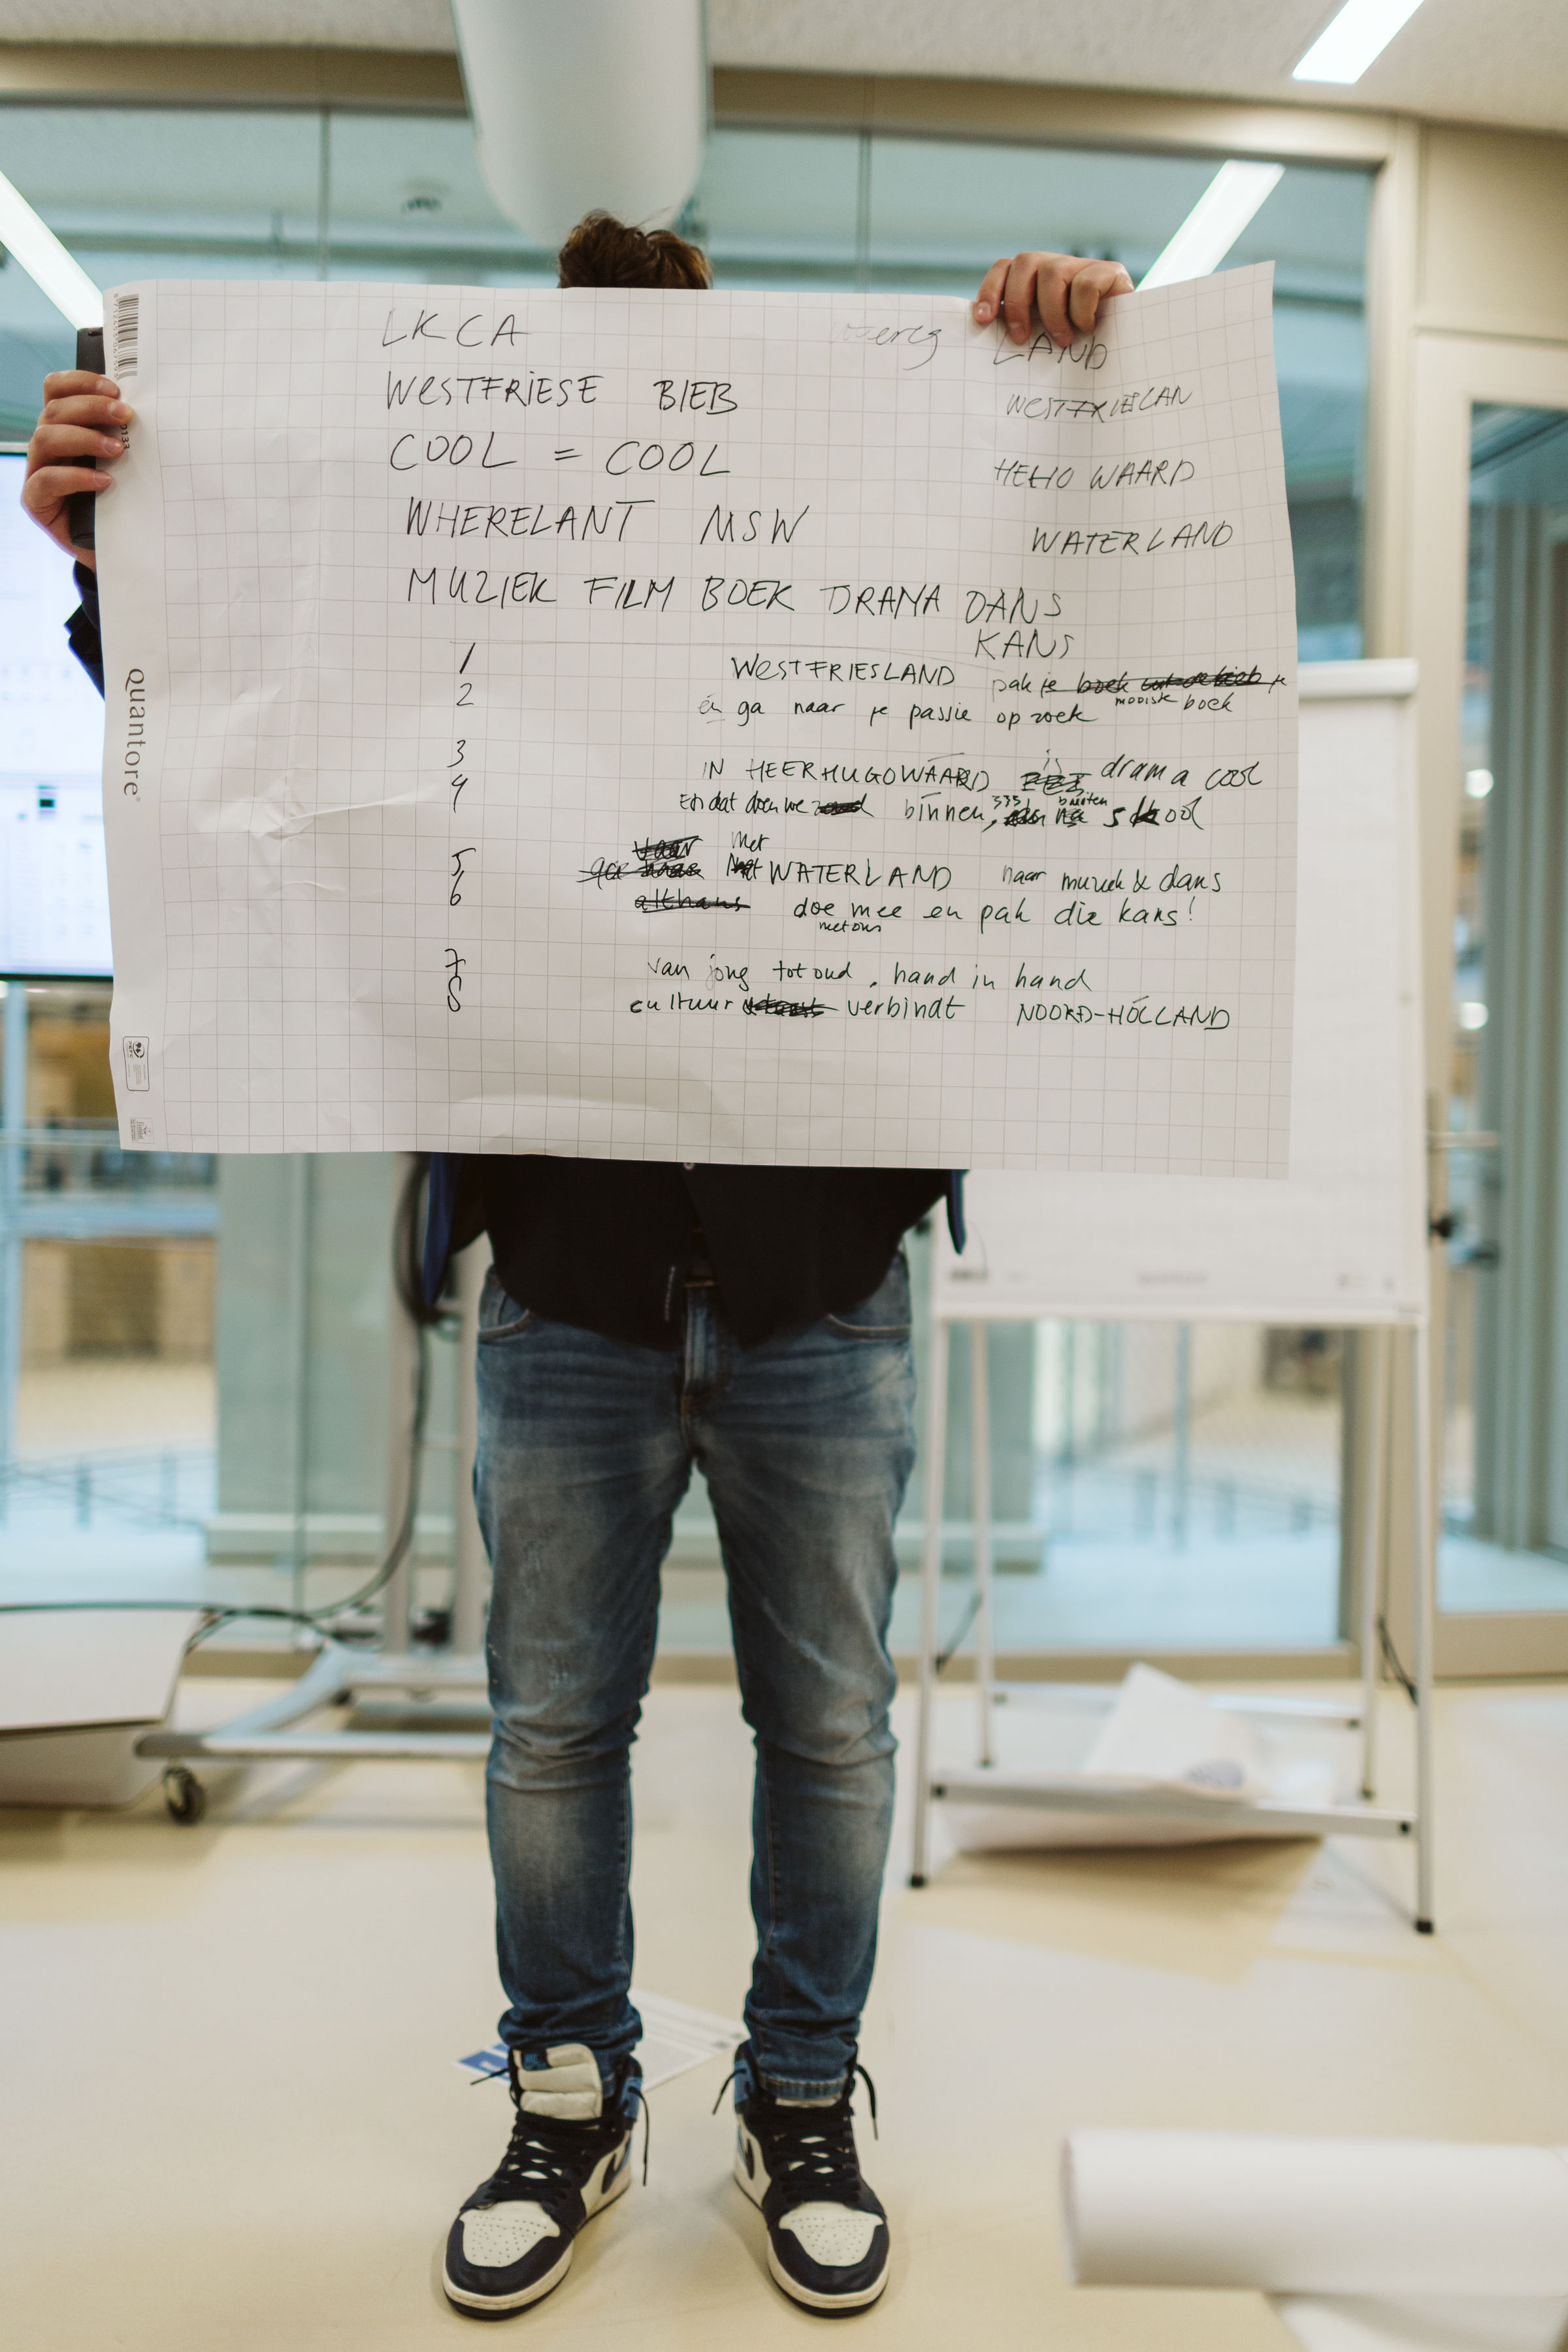 LKCA LAND
WESTFRIESE BIEB WESTFRIESLAN
COOL = COOL HEHO WAARD
WHERELANT MSW WATERLAND
MUZIEK FILM BOEK DRAMA DANS
KANS
1 WESTFRIESLAND pak je boek uit de bieb je
mooiste boek
2 én ga naar je passie op zoek
is
3 IN HEERHUGOWAARD drama cool
buiten
4 En dat doen we binnen, na school
Met
5 WATERLAND naar muziek & dans
6 althans doe mee en pak die kans!
met ons
7 van jong tot oud, hand in hand
8 cultuur verbindt NOORD-HOLLAND
Quantore